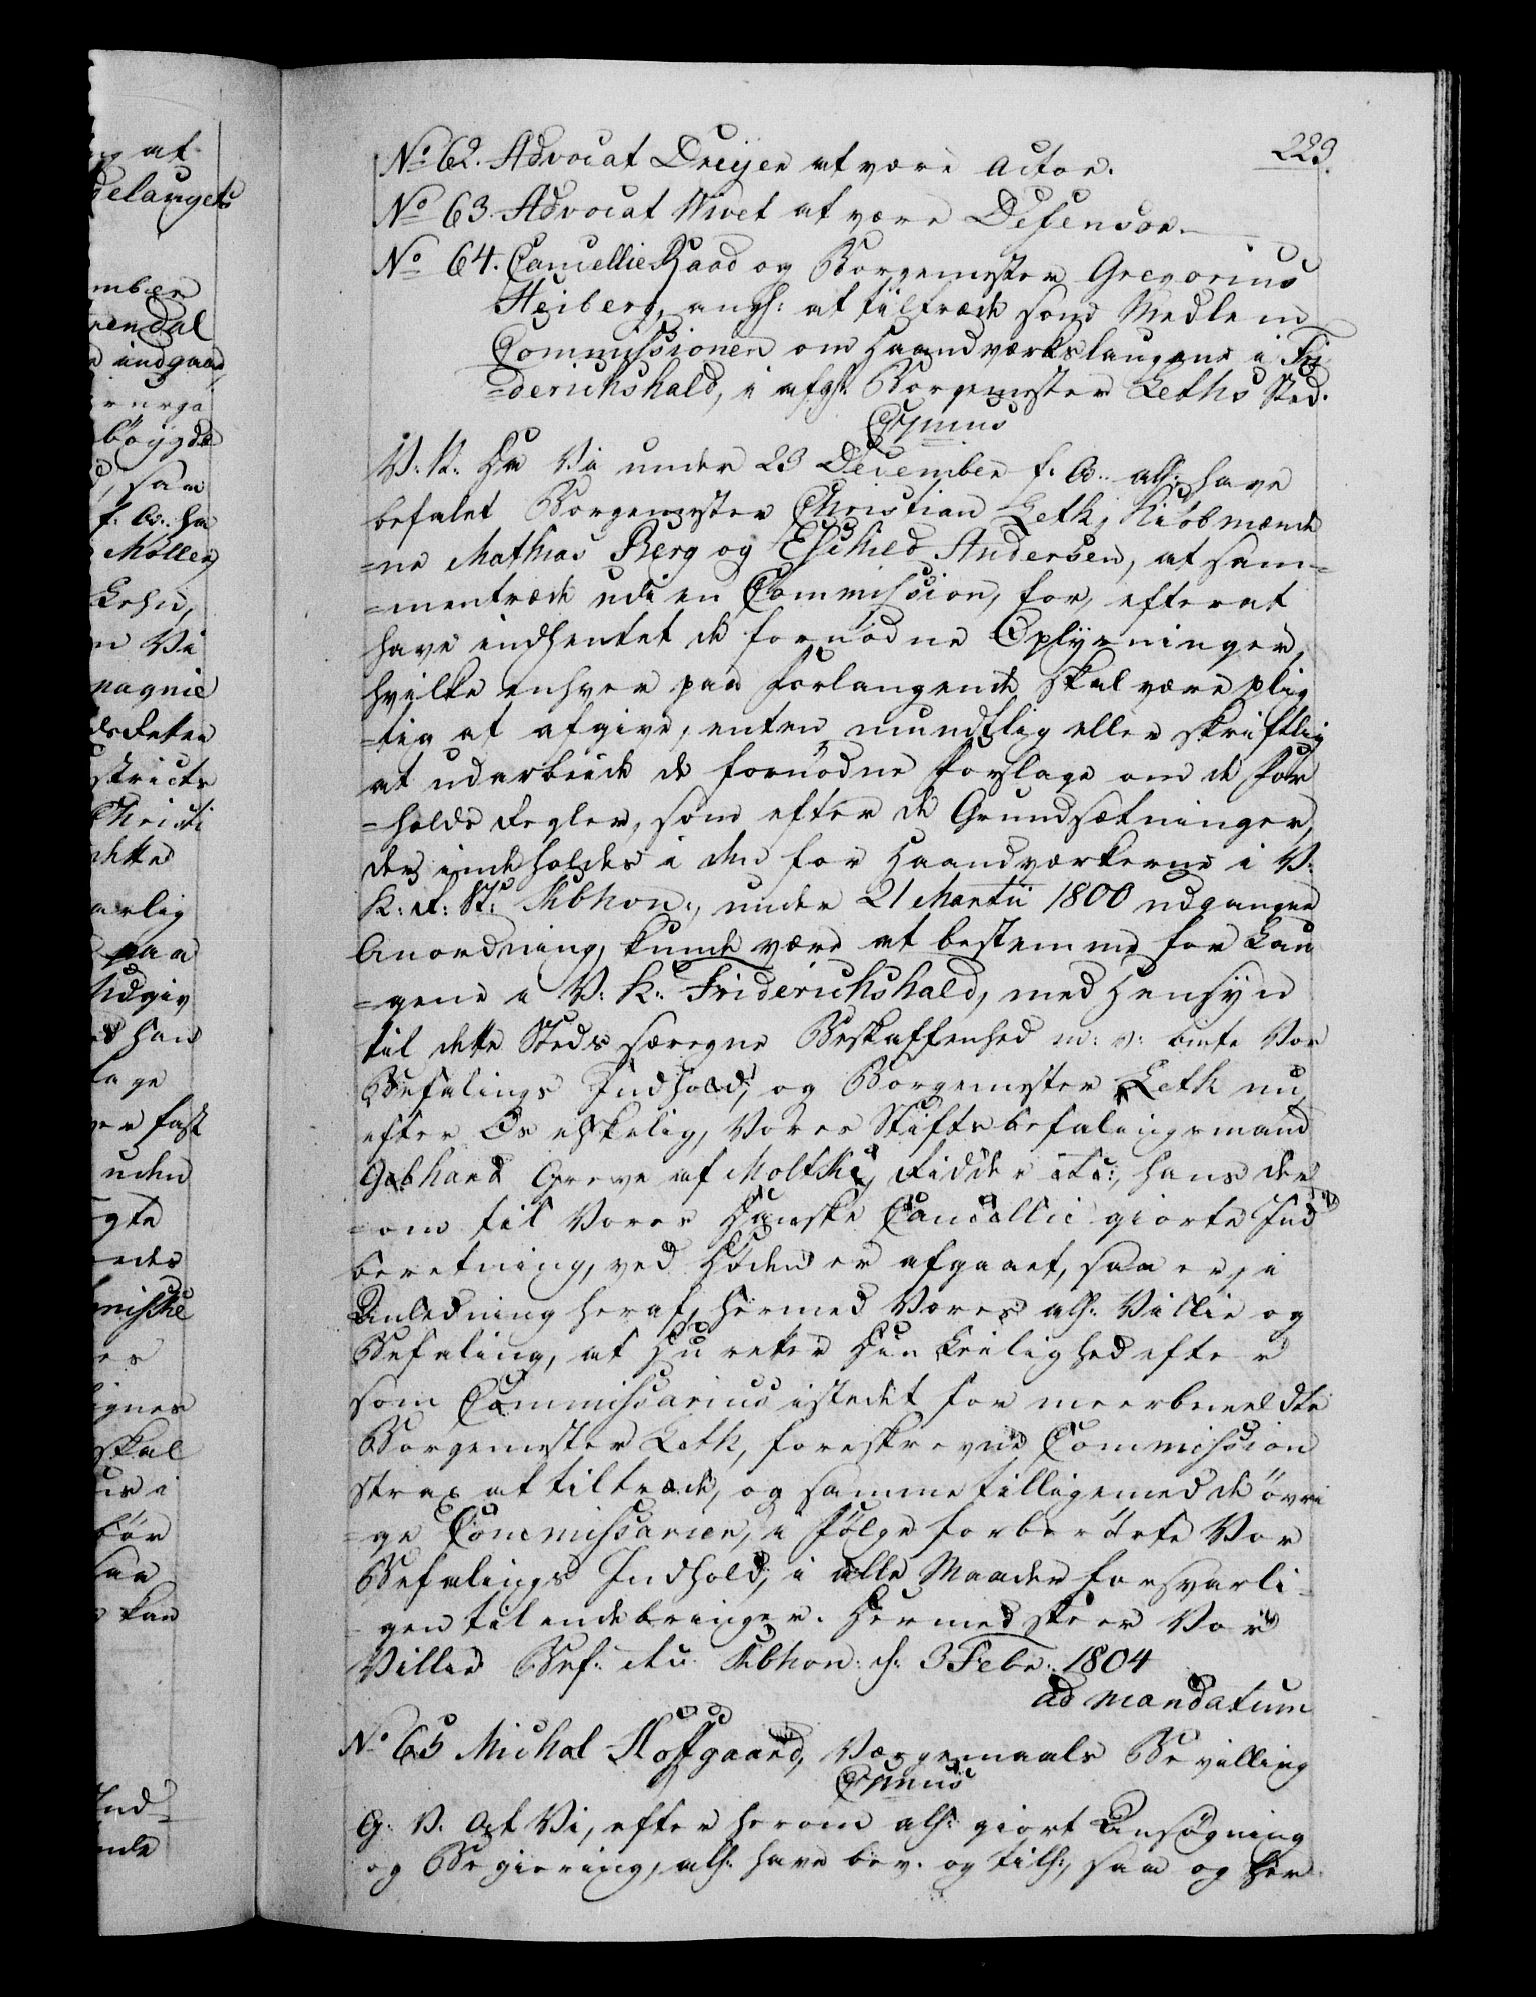 223.
No 62. Advocat Dreÿer at være Actor.
No 63. Advocat Wivet at være Defensor.
No 64. CancellieRaad og Borgemester Gregorius
Heiberg, angh: at tiltræde som Medlem
Commissionen om Haandværkslaugene i Fri
=derichshald, i afgh: Borgemester Leths Sted.
C7mus
V: K: Da Vi under 23 December f: A: alh: have
befalet Borgemester Christian Leth, Kiöbmænde
=ne Mathias Berg og Eschild Andersen, at sam=
=mentræde udi en Commission, for, efter at
have indhentet de fornödne Oplÿsninger,
hvilke enhver paa Forlangende skal være plig
=tig at afgive, enten mundtlig eller skriftlig
at udarbeide de fornödne Forslage om de For
=holds Regler, som efter de Grundsætninger,
der indeholdes i den for Haandværkerne i V:
K: R: St: Kbhvn:, under 21 Martii 1800 udgangne
Anordning, kunde være at bestemme for Lau
=gene i V: K: Friderichshald, med Hensÿn
til dette Steds særegne Beskaffenhed m: v: bmte Vor
Befalings Indhold; og Borgemester Leth nu
efter Os elskelig, Vores Stiftsbefalingsmand
Gebhard Greve af Moltke, Ridder etc:, hans der
=om til Vores Danske Cancellie giorte Ind
beretning, ved Döden er afgaaet, saa er, i
Anledning heraf, hermed Vores alh: Villie og
Befaling, at Du retter Din Leilighed efter
som Commissarius istedet for meerbemeldte
Borgemester Leth, foreskrevne Commission
strax at tiltræde, og samme tilligemed de övri
=ge Commissarier, i Fölge forberörte Vor
Befalings Indhold, i alle Maader forsvarli=
gen tilendebringer. Hermed skeer Vor
Villie Bef: etc: Kbhvn: d: 3 Febr: 1804
ad mandatum
No 65 Michal Hoffgaard, Værgemaals Bevilling
C7mus
G: V: At Vi, efter herom alh: giort Ansøgning
og Begiering, alh: have bev: og tilh:, saa og her